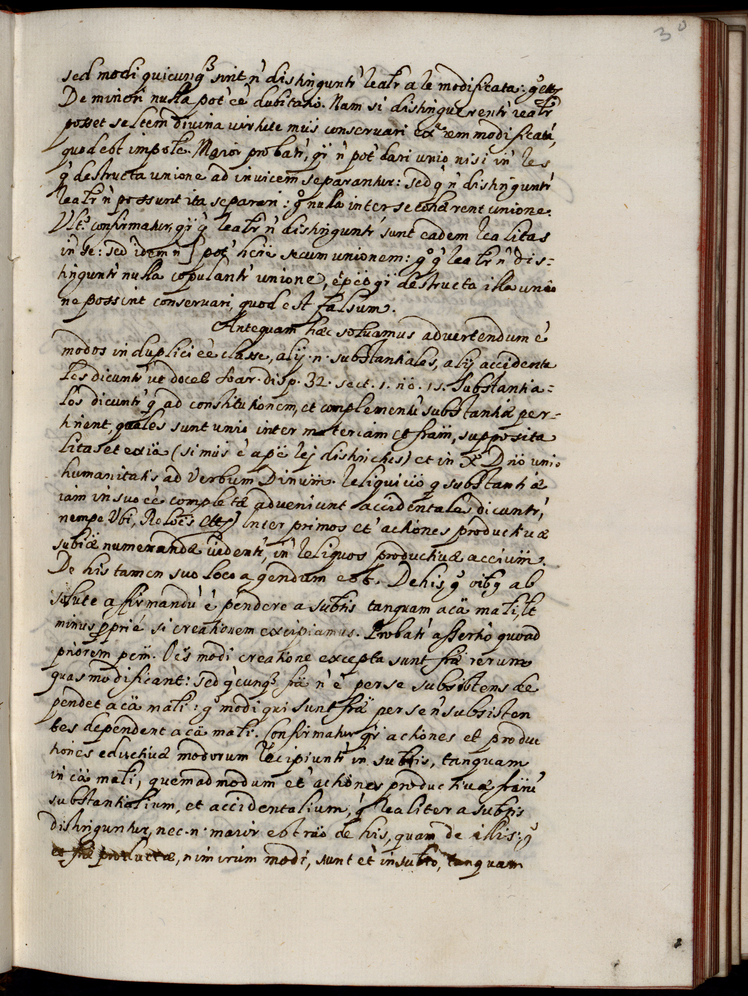 30
sed modi quicunq3 sint ñ distinguntr̃ realr̃ a re modificata: g° etc
De minori nulla pot' ẽẽ dubitatio. Nam si distinguerentr̃ realr̃
posset seltem divina virtute mũs conservari ex^a rem modificatã,
quod est impole. Maior probatr̃, qr̃ ñ pot' dari unio nisi int' res
q̃ destructa unione ad invicem separantur: sed q̃ ñ distinguntr̃
realr̃ ñ possunt ita separari: g° nulla inter se cohærent unione.
Ult° confirmatur, qr̃ q̃ realr̃ ñ distinguntr̃ sunt eadem realitas
int' se: sed idem ñ pot' h̃ere secum unionem: g° q̃ realr̃ ñ dis-
tinguntr̃ nulla copulantr̃ unione, destructa illa unio
ne possint conservari, quod est falsum.
Antequam hæc solvamus advertendum ẽ
modos in duplici ẽẽ classe, alij .n. substantiales, alij accidenta
les dicuntr̃ ut docet Soar. disp. 32. sect. 1. no. 15. Substantia-
les dicuntr̃ q̃ ad constitutionem, et complementũ substantiæ per-
tinent, quales sunt unio inter materiam et fram̃, supposita
litas et exiã (si mũs ẽ a p̃ẽ rej distinctus) et in X° D. nõ unio
humanitatis ad Verbum Divinũm. Reliqui v̊ò q̃ substantiæ
iam in suo ẽẽ completæ adveniunt accidentales dicuntr̃,
nempe Ubi, Relões etc. Inter primos et' actiones productivæ
subiæ numerandæ videntr̃, int' reliquos productivæ acciũm.
De his tamen suo loco agendum est. De his g° oĩbq ab
solute affirmandũ ẽ pendere a subtis tanquam a cã mali, lt
minus p̱prie si creationem excipiamus. Probatr̃ assertio quoad
priorem p̃em. Oẽs modi creatione excepta sunt fræ̃ rerum
quas modificant: sed q̃cunq3 frã ñ ẽ per se subsistens de
pendet a cã mali: g° modi qui sunt fræ̃ per se ñ subsisten
tes dependent a cã mali. Confirmatur qr̃ actiones et produc
tiones eductivæ modorum recipiuntr̃ in subtis, tanquam
in cã mali, quemadmodum et' actiones productivæ frarũ
substantialium, et accidentalium, q̃ realiter a subtis
distinguntur, nec .n. maior est rão de his, quam de illis: g°
et fræ productæ, nimirum modi, sunt et' in subto, tanquam